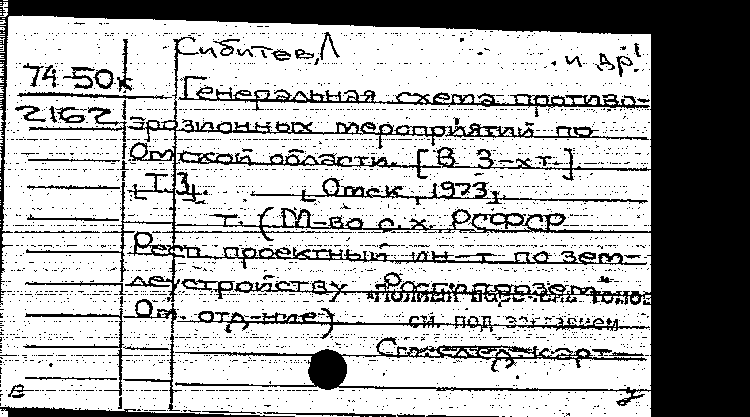 Сибитев, Л
и др!
74-50к
2162
Генеральная схема противо-
эрозионных мероприятий по
Омской области. [В 3-х т.]
Т.3. Омск, 1973,
т. (М-во с. х. РСФСР
Респ. проектный ин-т по зем-
леустройству "Росгипрозем"
"Полный перечень томов
Ом. отд-ние)
см. под заглавием
в